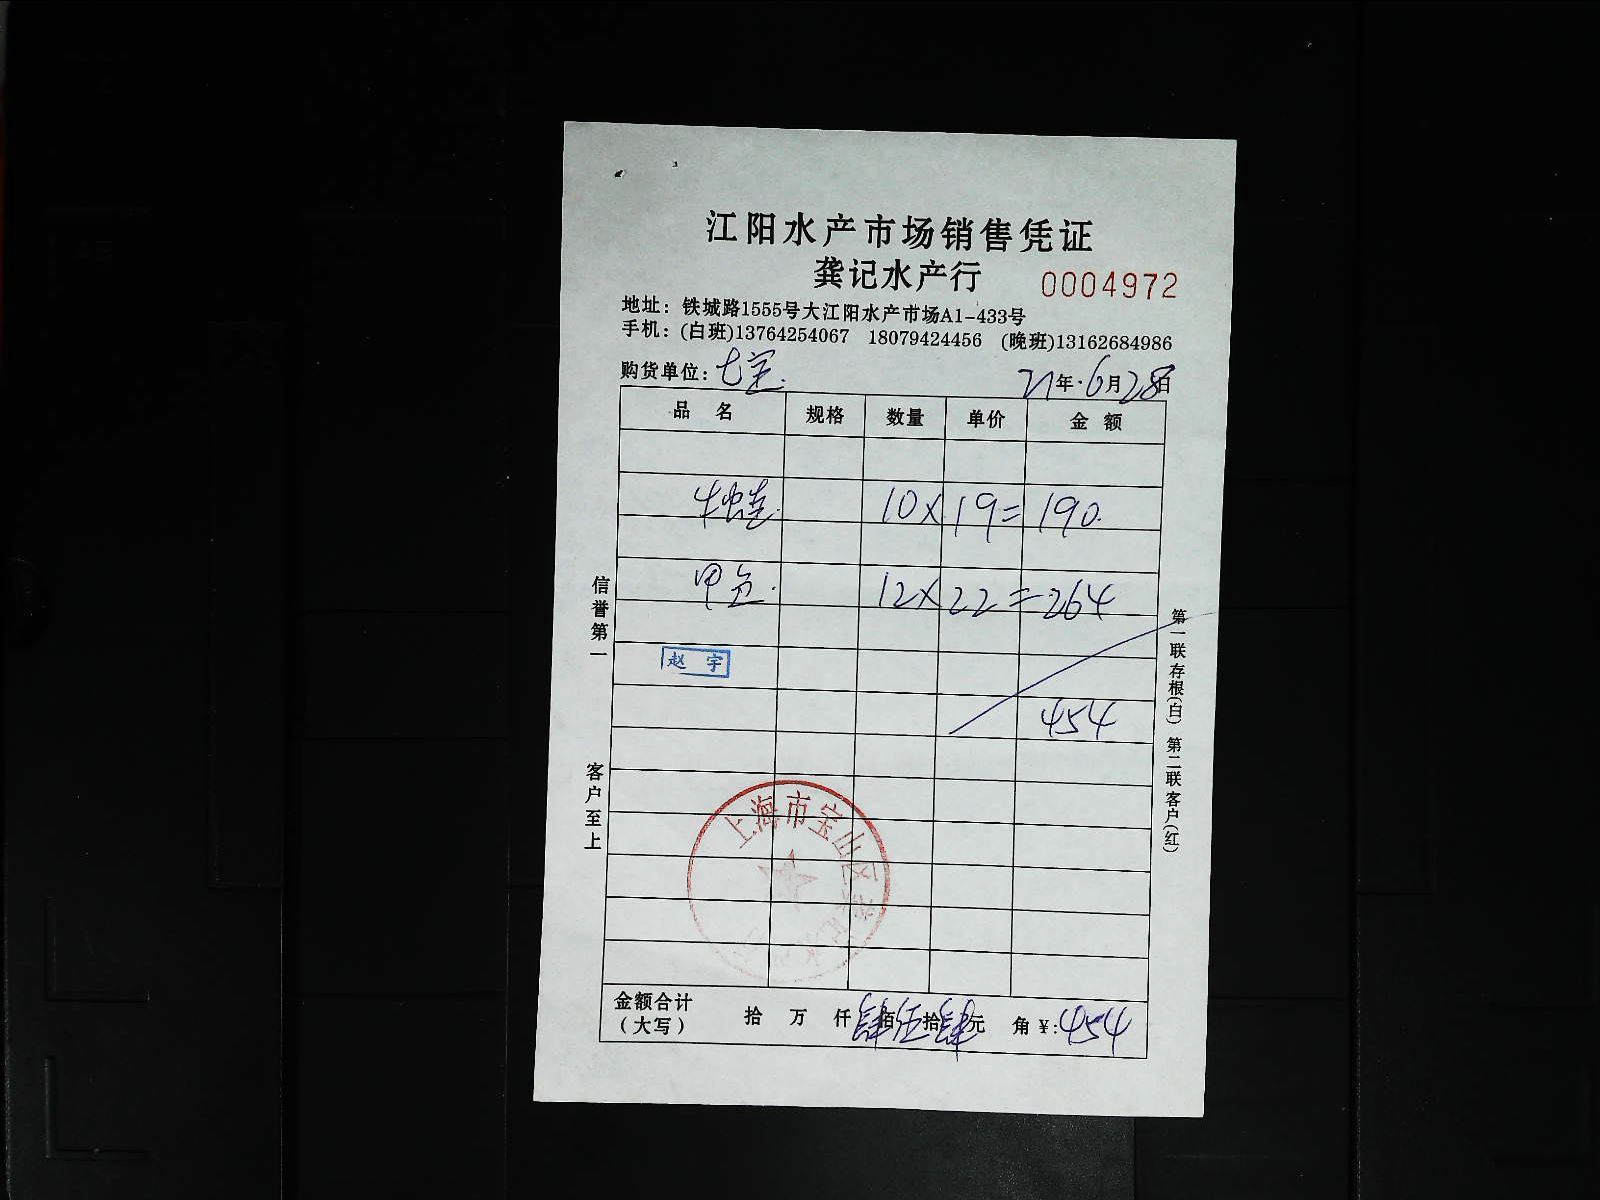 江阳水产市场销售凭证
龚记水产行 0004972
地址：铁城路1555号大江阳水产市场A1-433号
手机：(白班)13764254067 18079424456 (晚班)13162684986
购货单位：七宝 21年6月28日
品名 规格 数量 单价 金额
牛蛙 10× 19= 190
甲鱼 12× 22= 264
赵宇
454
上海市宝山区
金额合计（大写） 拾 万 仟 肆佰伍拾肆元 角 ¥:454
信誉第一
客户至上
第一联存根(白) 第二联客户(红)